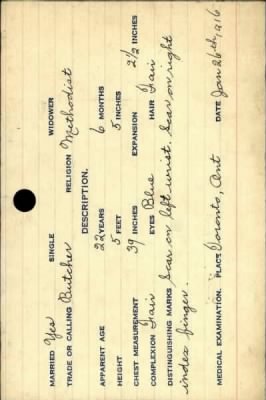 MARRIED Yes SINGLE WIDOWER
TRADE OR CALLING Butcher RELIGION Methodist
DESCRIPTION.
APPARENT AGE 22 YEARS 6 MONTHS
HEIGHT 5 FEET 5 INCHES
CHEST MEASUREMENT 39 INCHES EXPANSION 2½ INCHES
COMPLEXION Fair EYES Blue HAIR Fair
DISTINGUISHING MARKS Scar on left wrist. Scar on right
index finger.
MEDICAL EXAMINATION. PLACE Toronto, Ont DATE Jan 26th, 1916